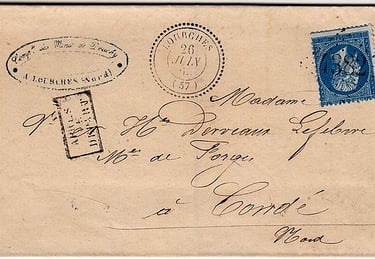 Comp.ie des Mines de Douchy
A LOURCHES (Nord)
LOURCHES
26
JUIN
(57)
APRÈS
LE
DÉPART
Madame
V.e H.te Derveaux Lefebvre
M.e de Forges
à Condé
Nord